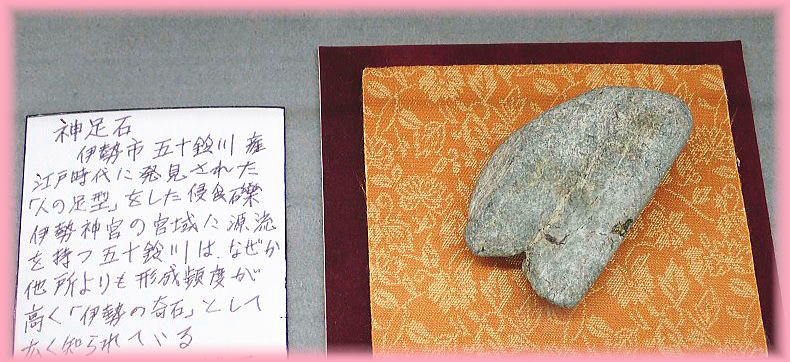 神足石
伊勢市 五十鈴川 産
江戸時代に発見された
「人の足型」をした侵食礫
伊勢神宮の宮域に源流
を持つ五十鈴川は、なぜか
他所よりも形成頻度が
高く「伊勢の奇石」として
広く知られている